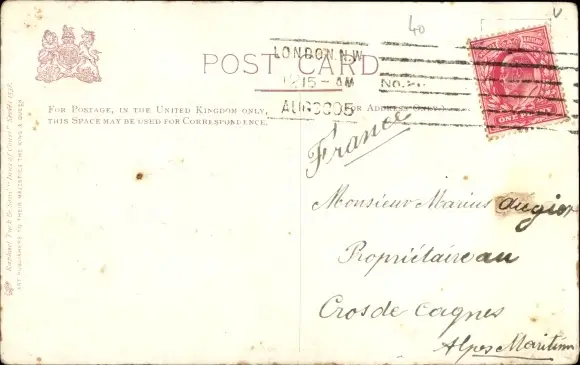 40
LONDON. N.W
POST CARD
12 15 - AM
AUG 30 05
FOR POSTAGE, IN THE UNITED KINGDOM ONLY,
THIS SPACE MAY BE USED FOR CORRESPONDENCE.
(FOR ADDRESS ONLY.)
ONE
France
Monsieur Marius Augier
Propriétaire au
Cros de Cagnes
Alpes Maritim
Raphael Tuck & Sons'
ART PUBLISHERS TO THEIR MAJESTIES THE KING & QUEEN.